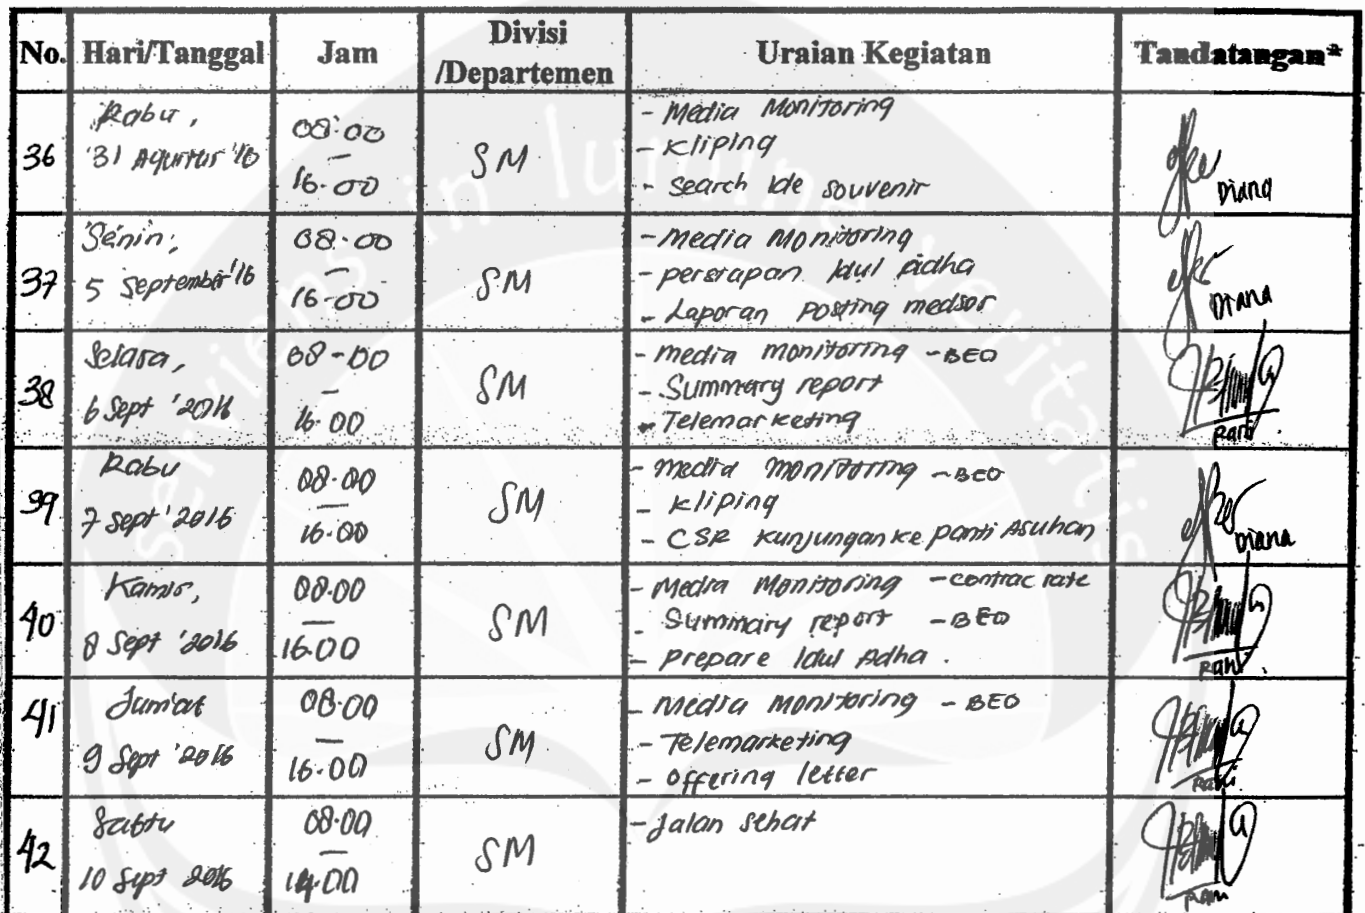 No. Hari/Tanggal Jam Divisi /Departemen Uraian Kegiatan Tandatangan*
36 Rabu, 31 Agustus '16 08.00 – 16.00 SM
- Media Monitoring
- Kliping
- Search Ide Souvenir
Diana
37 Senin, 5 September '16 08.00 – 16.00 SM
- Media Monitoring
- persiapan Idul Adha
- Laporan Posting medsos
Diana
38 Selasa, 6 Sept '2016 08-00 – 16.00 SM
- Media Monitoring - BEO
- Summary report
- Telemarketing
Rani
39 Rabu 7 Sept '2016 08.00 – 16.00 SM
- Media Monitoring - BEO
- Kliping
- CSR Kunjungan ke Panti Asuhan
Diana
40 Kamis, 8 Sept '2016 08.00 – 16.00 SM
- Media Monitoring - contrac rate
- Summary report - BEO
- Prepare Idul Adha.
Rani
41 Jum'at 9 Sept '2016 08.00 – 16.00 SM
- Media Monitoring - BEO
- Telemarketing
- Offering letter
Rani
42 Sabtu 10 Sept 2016 08.00 – 14.00 SM
- Jalan Sehat
Rani
serviens in lumine veritatis